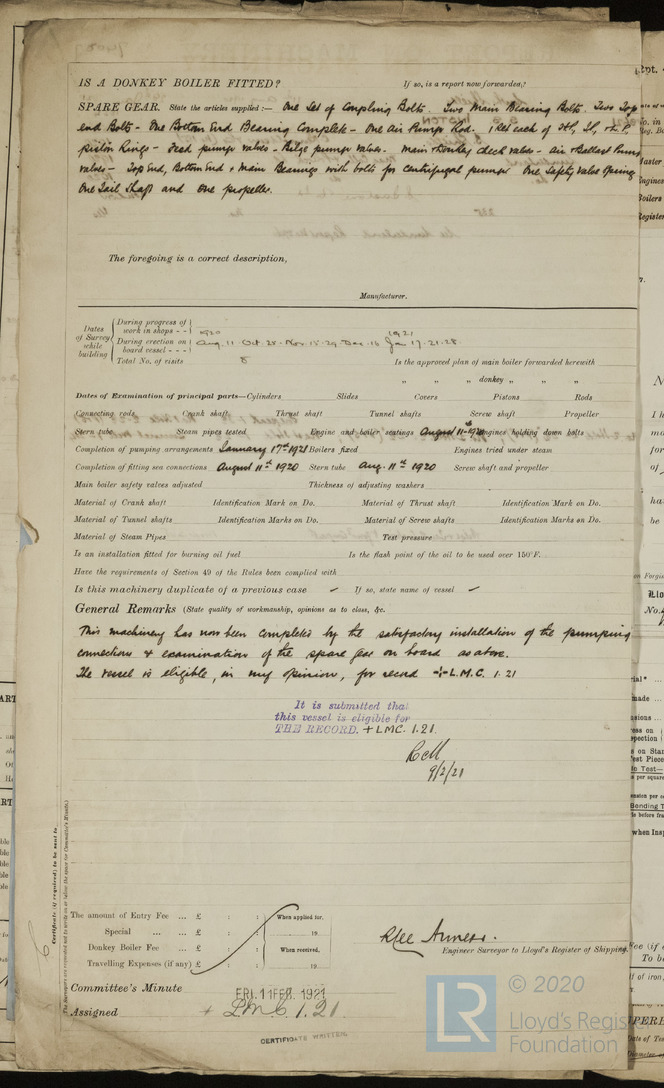 IS A DONKEY BOILER FITTED? If so, is a report now forwarded?
SPARE GEAR. State the articles supplied:— One Set of Coupling Bolts. Two Main Bearing Bolts. Two Top
end Bolts - One Bottom End Bearing Complete - One Air Pump Rod. 1 Set each of HP, IP, & LP.
piston Rings - Feed pump valves - Bilge pump valves. Main & Donkey check valves - Air & Ballast Pump
valves - Top End, Bottom End & Main Bearings with bolts for centrifugal pumps One Safety Valve Spring
One Tail Shaft and one propeller.
The foregoing is a correct description,
Manufacturer.
Dates of Survey while building
During progress of work in shops - -
1920 1921
During erection on board vessel - - -
Aug. 11 Oct. 28 - Nov. 15 - 29 Dec. 16 Jan 17 - 21 - 28
Total No. of visits 8 Is the approved plan of main boiler forwarded herewith
" " " donkey " " "
Dates of Examination of principal parts—Cylinders Slides Covers Pistons Rods
Connecting rods Crank shaft Thrust shaft Tunnel shafts Screw shaft Propeller
Stern tube Steam pipes tested Engine and boiler seatings August 11th 1920 Engines holding down bolts
Completion of pumping arrangements January 17th 1921 Boilers fixed Engines tried under steam
Completion of fitting sea connections August 11th 1920 Stern tube Aug. 11th 1920 Screw shaft and propeller
Main boiler safety valves adjusted Thickness of adjusting washers
Material of Crank shaft Identification Mark on Do. Material of Thrust shaft Identification Mark on Do.
Material of Tunnel shafts Identification Marks on Do. Material of Screw shafts Identification Marks on Do.
Material of Steam Pipes Test pressure
Is an installation fitted for burning oil fuel Is the flash point of the oil to be used over 150°F.
Have the requirements of Section 49 of the Rules been complied with
Is this machinery duplicate of a previous case ✓ If so, state name of vessel ✓
General Remarks (State quality of workmanship, opinions as to class, &c.
This machinery has now been completed by the satisfactory installation of the pumping
connections & examination of the spare gear on board as above.
The vessel is eligible, in my opinion, for record +L.M.C. 1.21
It is submitted that
this vessel is eligible for
THE RECORD. + LMC. 1.21.
9/2/21
Certificate (if required) to be sent to
The amount of Entry Fee ... £ : : When applied for.
Special ... ... £ : : 19
Donkey Boiler Fee ... £ : : When received,
Travelling Expenses (if any) £ : : 19
Engineer Surveyor to Lloyd's Register of Shipping.
Committee's Minute FRI. 11 FEB. 1921
Assigned + LMC 1.21
CERTIFICATE WRITTEN.
LR © 2020
Lloyd's Register
Foundation